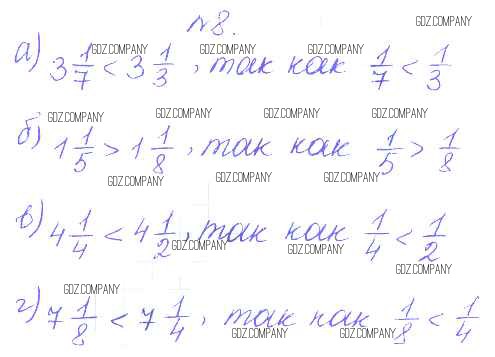 №8.
а) 3 1/7 < 3 1/3, так как 1/7 < 1/3
б) 1 1/5 > 1 1/8, так как 1/5 > 1/8
в) 4 1/4 < 4 1/2, так как 1/4 < 1/2
г) 7 1/8 < 7 1/4, так как 1/8 < 1/4
GDZ.COMPANY
GDZ.COMPANY GDZ.COMPANY GDZ.COMPANY
GDZ.COMPANY GDZ.COMPANY GDZ.COMPANY GDZ.COMPANY
GDZ.COMPANY GDZ.COMPANY GDZ.COMPANY
GDZ.COMPANY GDZ.COMPANY
GDZ.COMPANY
GDZ.COMPANY
GDZ.COMPANY GDZ.COMPANY